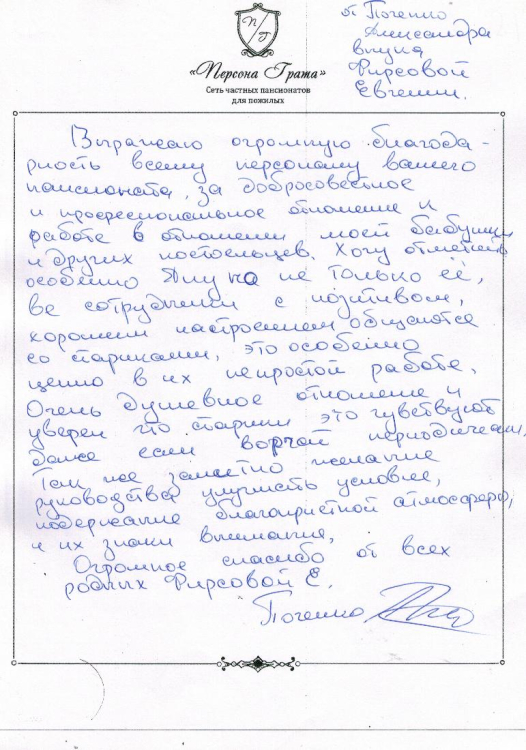 П/Г
«Персона Грата»
Сеть частных пансионатов
для пожилых
от Поченко
Александра
внука
Фирсовой
Евгении.
Выражаю огромную благода-
рность всему персоналу вашего
пансионата, за добросовестное
и профессиональное отношение к
работе в отношении моей бабушки
и других постояльцев. Хочу отметить
особенно но не только её,
все сотрудники с позитивом,
хорошим настроением общаются
со стариками, это особенно
ценно в их непростой работе.
Очень душевное отношение и
уверен что старики это чувствуют
даже если ворчат периодически.
Так же заметно желание
руководства улучшить условие,
подержание благоприятной атмосферы,
и их знаки внимания,
Огромное спасибо от всех
родных Фирсовой Е.
Поченко